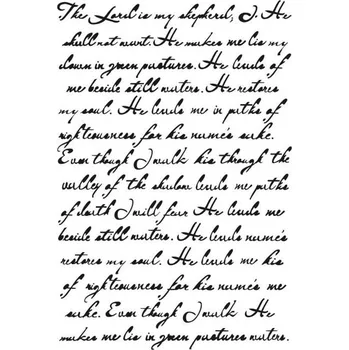 The Lord is my shepherd, I. He
shall not want. He makes me lie my
down in green pastures. He leads of
me beside still waters. He restores
my soul. He leads me in paths of
righteousness for his name's sake.
Even though I walk his through the
valley of the shadow leads me paths
of death I will fear He leads me
beside still waters. He leads name's
restores my soul. He leads me his
of righteousness for his name's me
sake. Even though I walk He
makes me lie in green pastures waters.